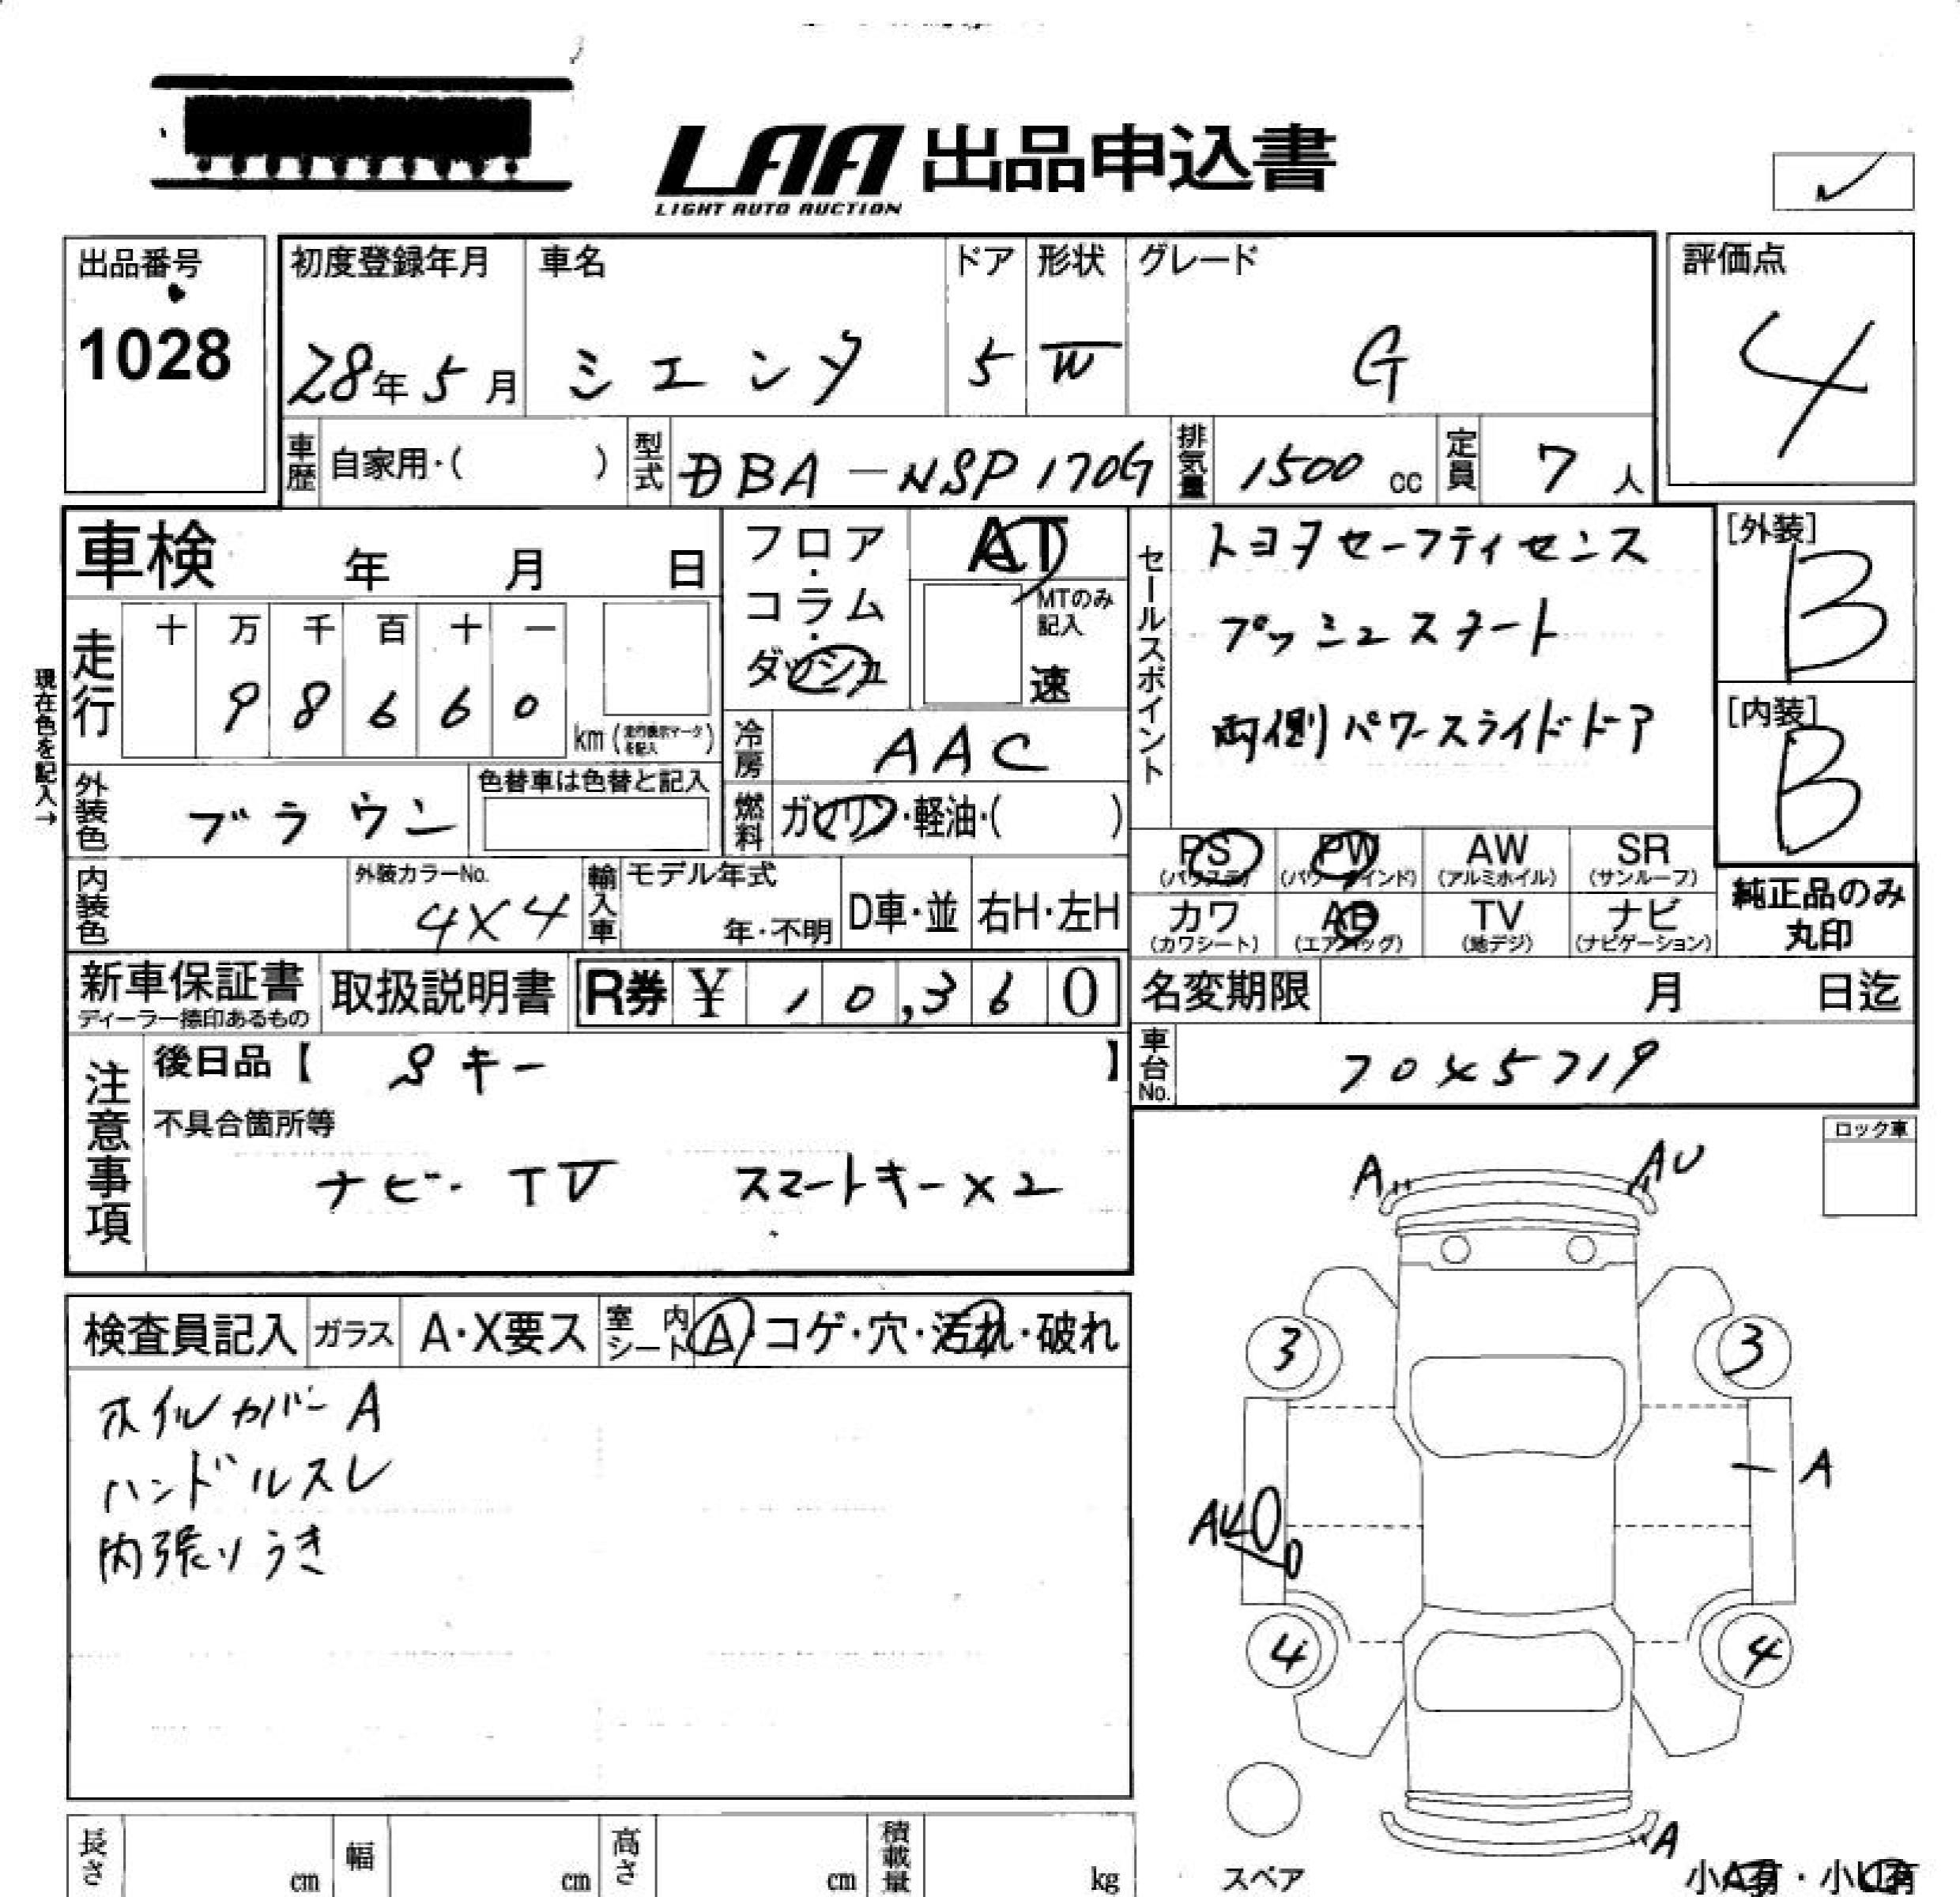 LAA 出品申込書
LIGHT AUTO AUCTION
出品番号
1028
初度登録年月 車名 ドア 形状 グレード
28年 5月 シエンタ 5 W G
評価点
4
車歴 自家用・( ) 型式 DBA-NSP170G 排気量 1500 cc 定員 7 人
車検 年 月 日
フロア・コラム・ダッシュ
AT
MTのみ記入
速
セールスポイント
トヨタセーフティセンス
プッシュスタート
両側パワースライドドア
[外装]
B
[内装]
B
現在色を記入→
走行 十 万 千 百 十 一
9 8 6 6 0
km (走行表示マークを記入)
冷房 AAC
外装色 ブラウン
色替車は色替と記入
燃料 ガソリン・軽油・( )
PS (パワステ) PW (パワーウインド) AW (アルミホイル) SR (サンルーフ)
カワ (カワシート) AB (エアバッグ) TV (地デジ) ナビ (ナビゲーション)
純正品のみ丸印
内装色
外装カラーNo.
4X4
輸入車 モデル年式 年・不明 D車・並 右H・左H
新車保証書
ディーラー捺印あるもの
取扱説明書 R券 ¥ 10,360
名変期限 月 日迄
車台No. 7045719
注意事項
後日品【 Sキー 】
不具合箇所等
ナビ・TV スマートキー×2
ロック車
検査員記入 ガラス A・X要ス 室内シート A・コゲ・穴・汚れ・破れ
ホイルカバーA
ハンドルスレ
内張りうき
A AU
3 3
A
4 4
A
スペア
小A有・小U有
長さ cm 幅 cm 高さ cm 積載量 kg